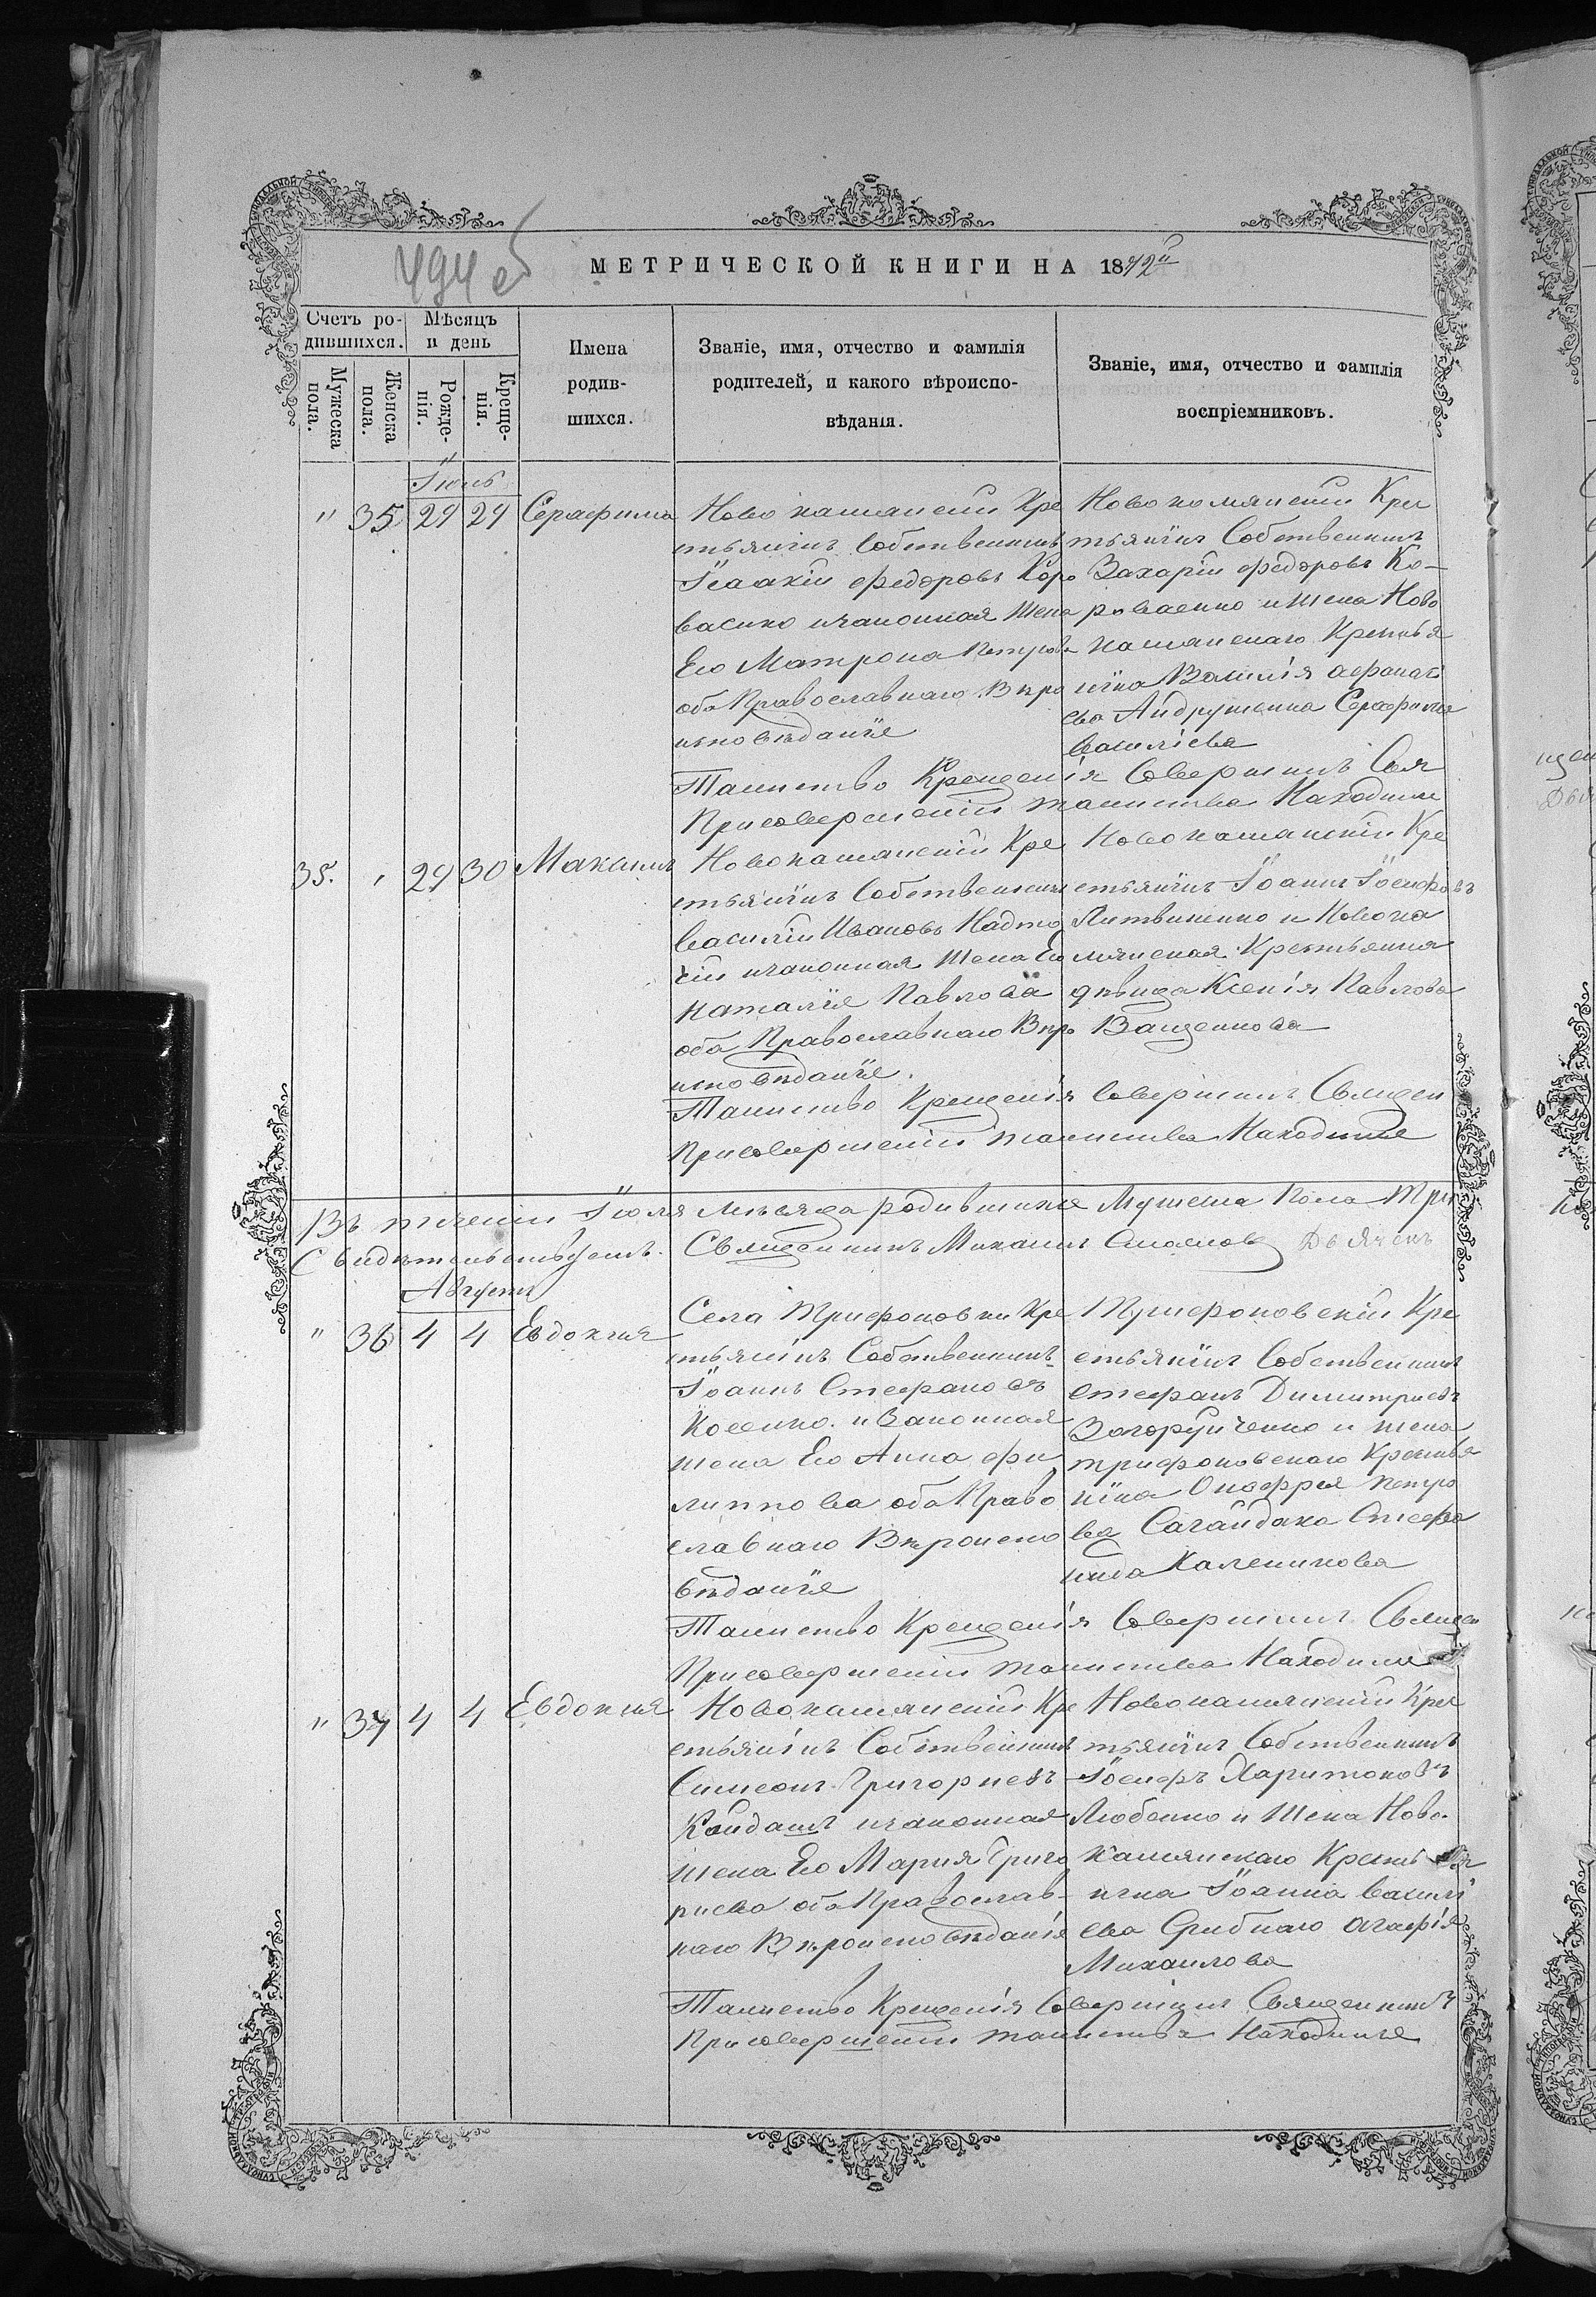 494 об
МЕТРИЧЕСКОЙ КНИГИ НА 1872й
Счетъ ро-
дившихся.
Мѣсяцъ
и день
Мужеска
пола.
Женска
пола.
Рожде-
нія.
Креще-
нія.
Имена
родив-
шихся.
Званіе, имя, отчество и фамилія
родителей, и какого вѣроиспо-
вѣданія.
Званіе, имя, отчество и фамилія
воспріемниковъ.
Іюль
" 35 29 29 Серафима
Новокамянскій Кре
стьянинъ Собственникъ
Ісаакій Федоровъ Коро
васнко изаконная Жена
Его Матрона Петрова
оба Православнаго Вѣро
исповѣданіе
Новокомянскій Крес
тьянинъ Собственникъ
Захарій Федоровъ Ко-
роваенко и Жена Ново
камянскаго Крестья
нина Василія Афонасі
ева Андрушенка Серафима
Васильева
Таинство Крещенія Совершилъ Свя
При совершеніи таинства Находился
35. " 29 30 Максимъ
Новокамянскій Кре
стьянинъ Собственникъ
Василій Ивановъ Надто
чій изаконная Жена Его
Наталія Павлова
оба Православнаго Вѣро
исповѣданіе.
Новокаманскій Кре
стьянинъ Іоаннъ Іосифовъ
Литвиненко и Новока
мянская Крестьянка
дѣвица Ксенія Павлова
Ващенкова
Таинство Крещенія Совершилъ Священ
При совершеніи таинства Находился
Въ теченіи Іюля мѣсяца родившихся Мужеска Пола три
Свидѣтельствуемъ. Священникъ Михаилъ Дьячекъ
Августъ
" 36 4 4 Евдокия
Села Трифоновки Кре
стьянинъ Собственникъ
Іоаннъ Стефановъ
Косенко. и Законная
жена Его Анна Фи
липпова оба Право
славнаго Вѣроиспо
вѣданіе
Трифоновскій Кре
стьянинъ Собственникъ
Стефанъ Димитріевъ
Загоруйченко и жена
трифоновскаго Крестья
нина Онофрея Петро
ва Сагайдака Стефа
нида Каленикова
Таинство Крещенія Совершилъ Священ
При совершеніи таинства Находился
" 37 4 4 Евдокия
Новокамянскій Кре
стьянинъ Собственникъ
Симеонъ Григориевъ
Кайдашъ изаконная
жена Его Мария Григо
риева оба Православ-
наго Вѣроисповѣданія
Новокамянскій Крес
тьянинъ Собственникъ
Іосифъ Харитоновъ
Любенко и Жена Ново-
камянскаго Крестья
нина Іоанна Василі
ева Срибнаго Агафія
Михаилова
Таинство Крещенія Совершилъ Священникъ
При совершеніи таинства Находился